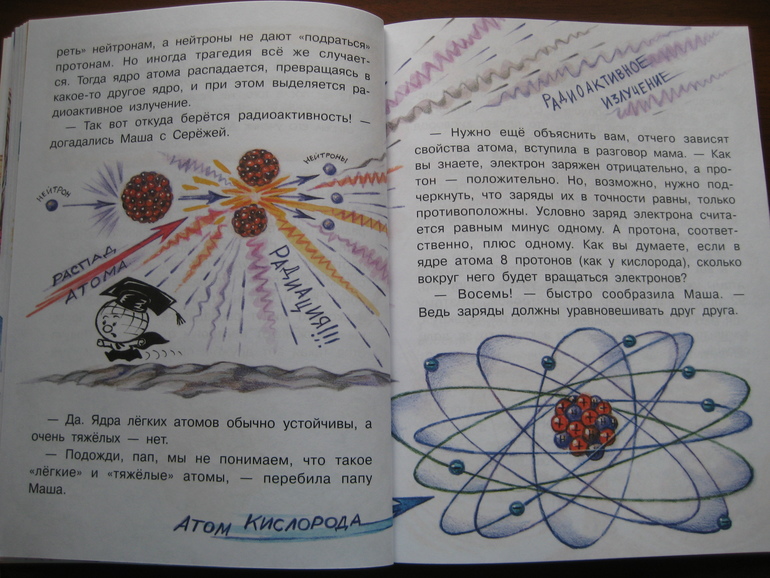 реть» нейтронам, а нейтроны не дают «подраться»
протонам. Но иногда трагедия всё же случает-
ся. Тогда ядро атома распадается, превращаясь в
какое-то другое ядро, и при этом выделяется ра-
диоактивное излучение.
— Так вот откуда берётся радиоактивность! —
догадались Маша с Серёжей.
НЕЙТРОН
НЕЙТРОНЫ
РАСПАД
АТОМА
РАДИАЦИЯ!!!!
— Да. Ядра лёгких атомов обычно устойчивы, а
очень тяжёлых — нет.
— Подожди, пап, мы не понимаем, что такое
«лёгкие» и «тяжёлые» атомы, — перебила папу
Маша.
АТОМ КИСЛОРОДА
РАДИОАКТИВНОЕ
ИЗЛУЧЕНИЕ
— Нужно ещё объяснить вам, отчего зависят
свойства атома, вступила в разговор мама. — Как
вы знаете, электрон заряжен отрицательно, а про-
тон — положительно. Но, возможно, нужно под-
черкнуть, что заряды их в точности равны, только
противоположны. Условно заряд электрона счита-
ется равным минус одному. А протона, соответ-
ственно, плюс одному. Как вы думаете, если в
ядре атома 8 протонов (как у кислорода), сколько
вокруг него будет вращаться электронов?
— Восемь! — быстро сообразила Маша. —
Ведь заряды должны уравновешивать друг друга.